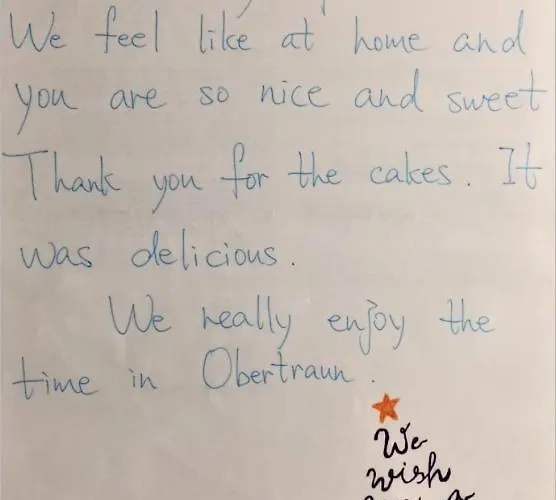 We feel like at home and
you are so nice and sweet
Thank you for the cakes. It
was delicious.
We really enjoy the
time in Obertraun.
We
wish